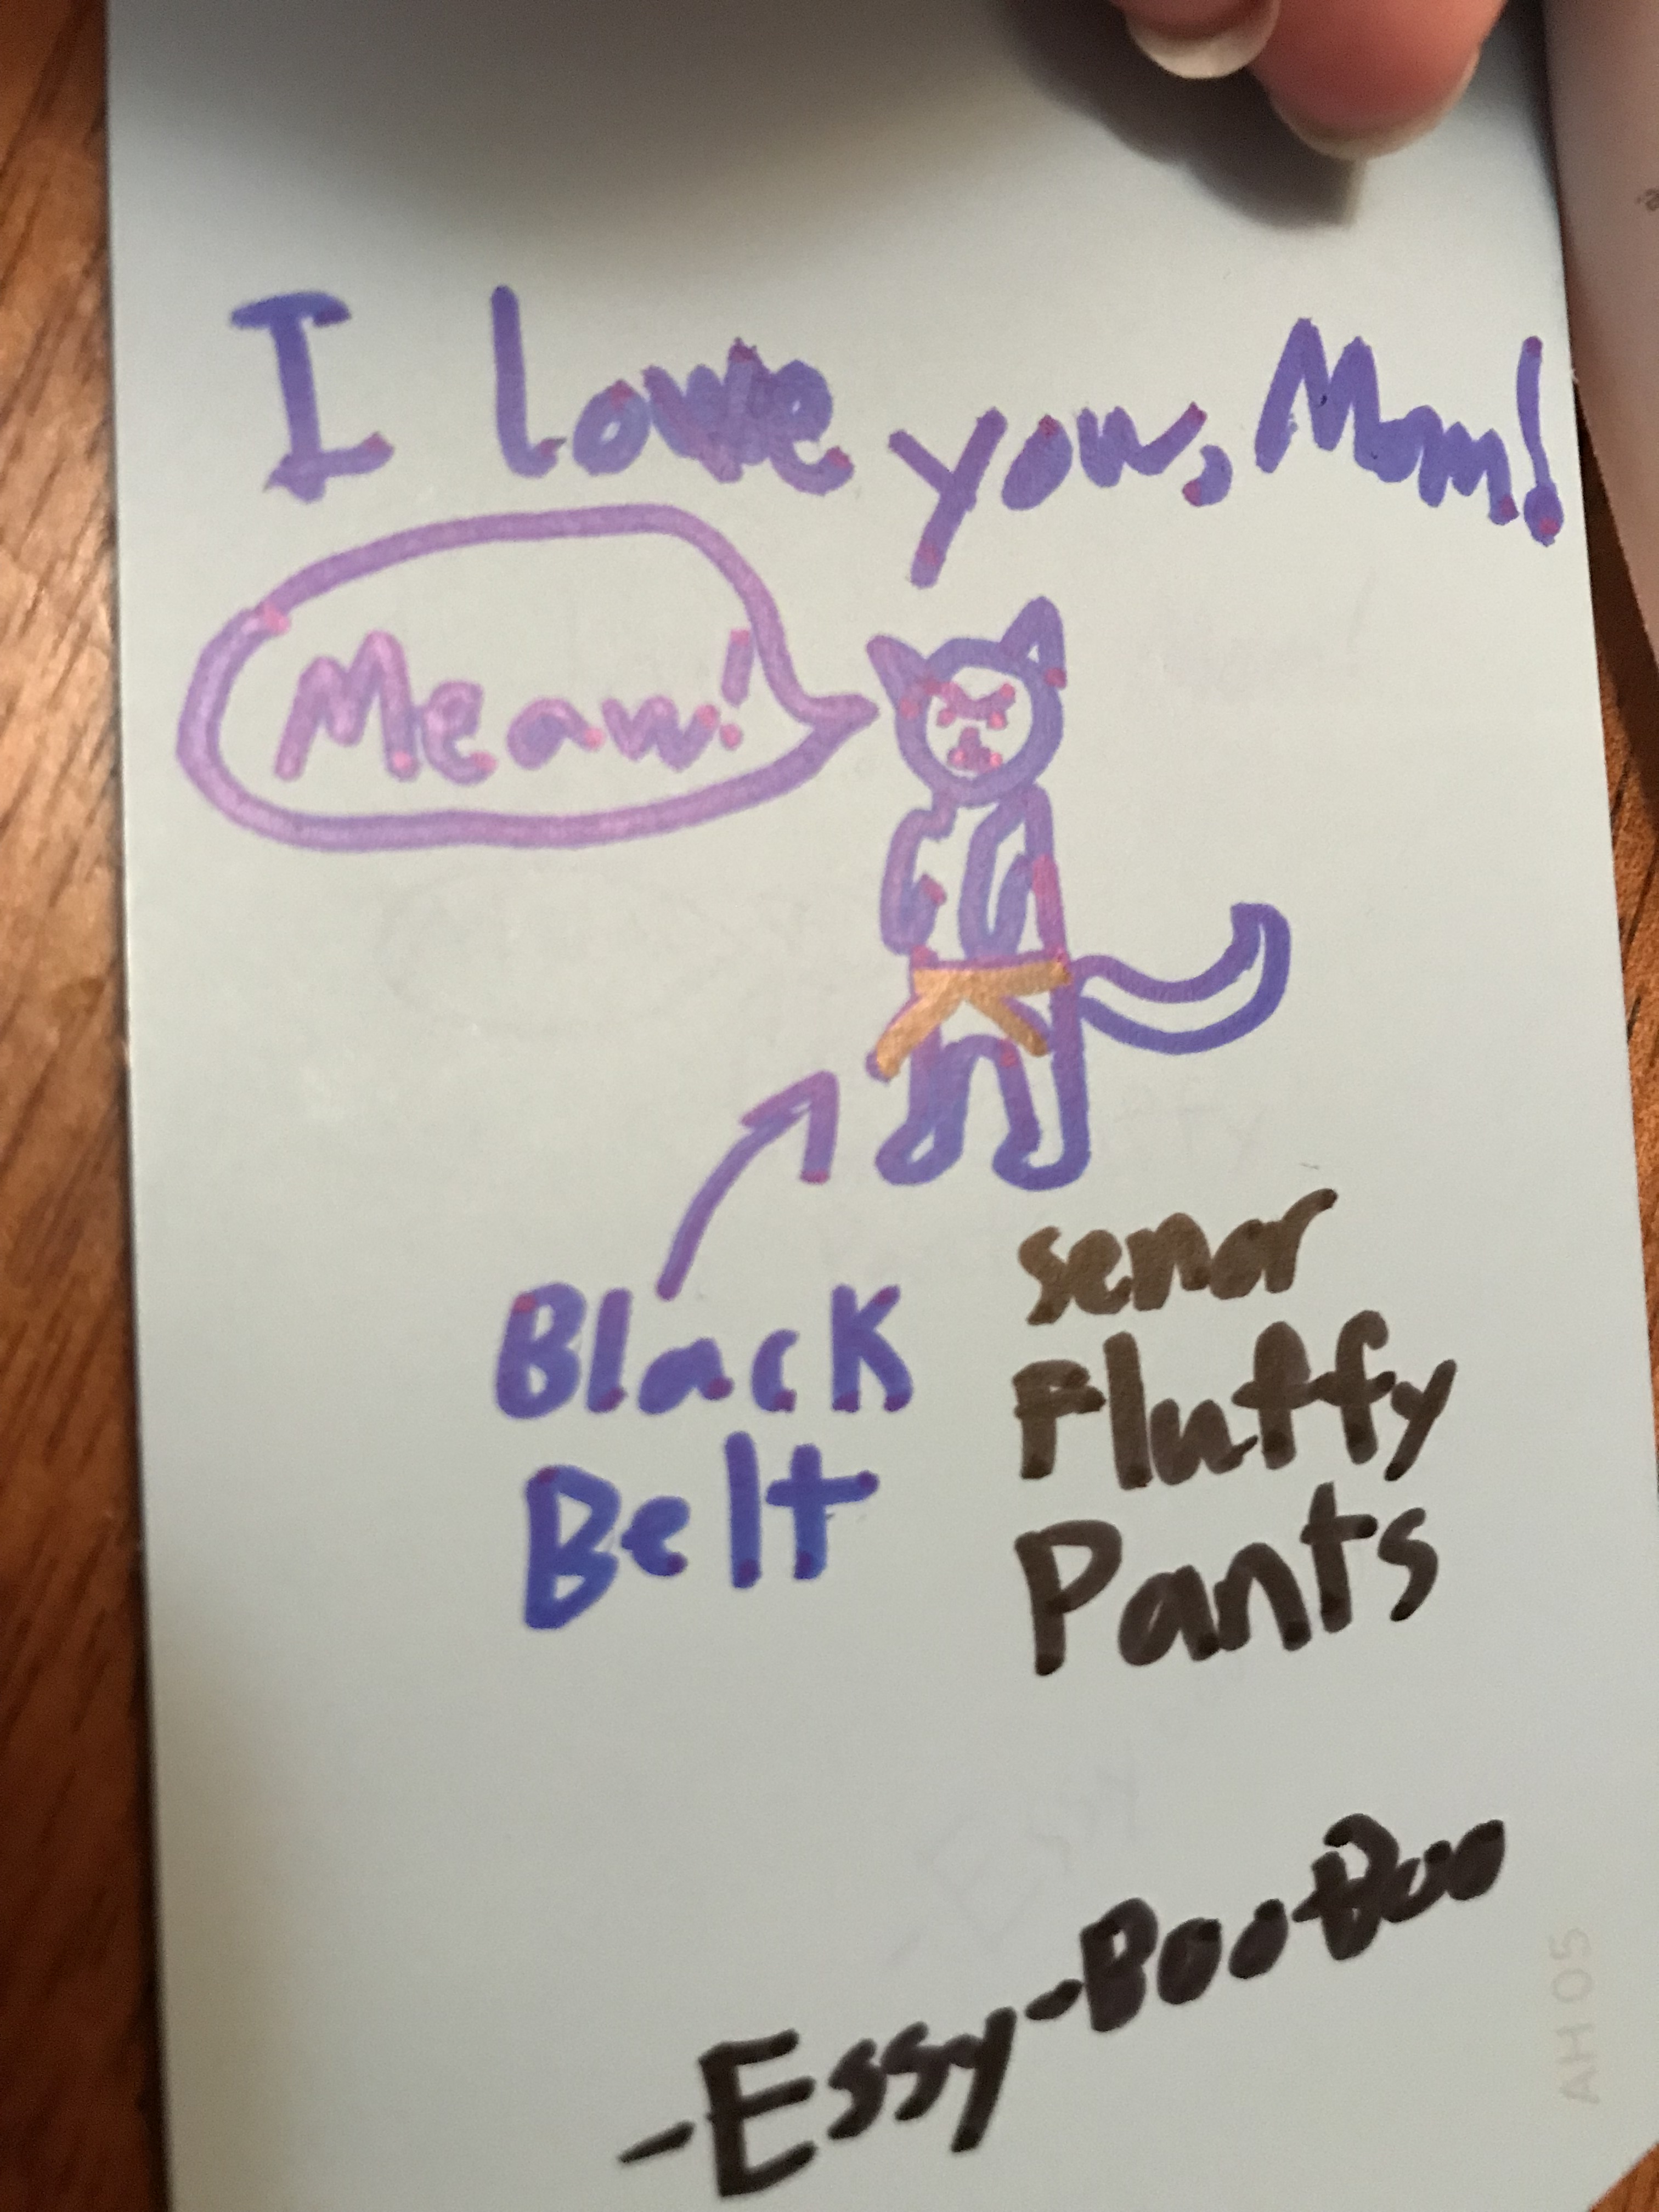 I love you, Mom!
Meaw!
Black
Belt
senor
Fluffy
Pants
-Essy-BooBoo
AH 05